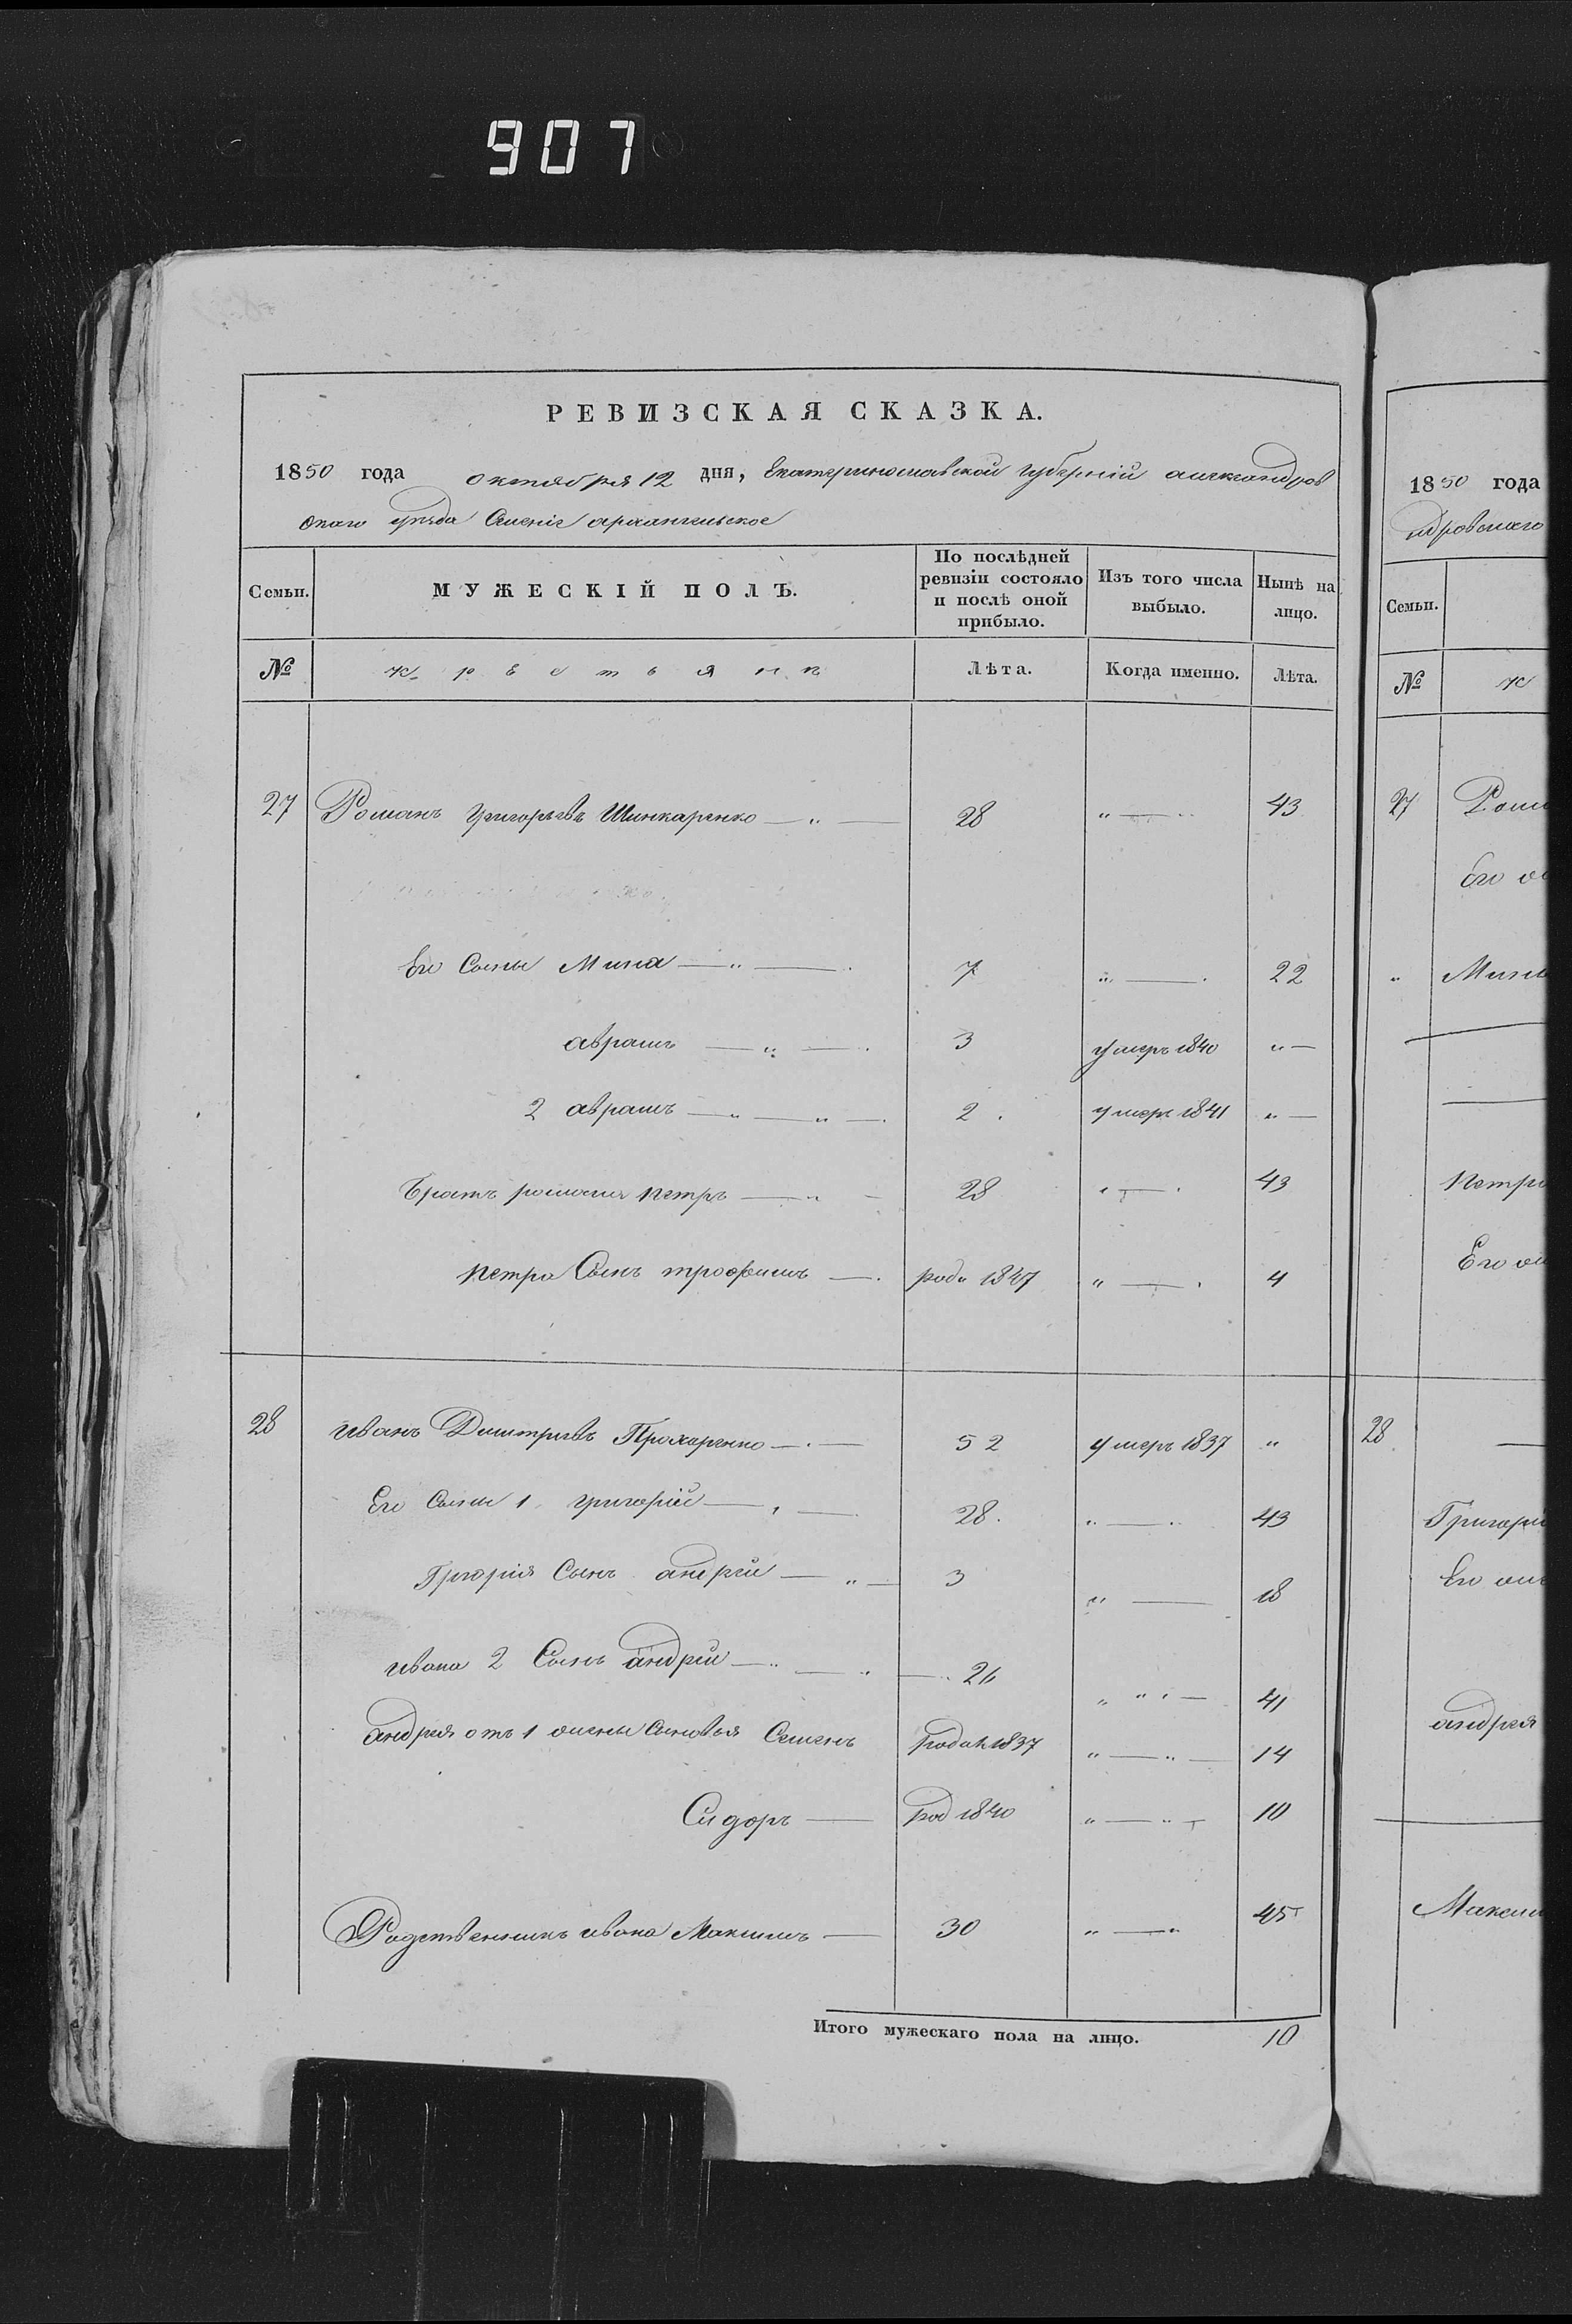 907
РЕВИЗСКАЯ СКАЗКА.
1850 года октября 12 дня, Екатеринославской губерніи александров
скаго уѣзда Селеніе архангельское
Семьи. МУЖЕСКІЙ ПОЛЪ. По послѣдней ревизіи состояло и послѣ оной прибыло. Изъ того числа выбыло. Нынѣ на лицо.
№ крестьянъ Лѣта. Когда именно. Лѣта.
27 Романъ Григорьевъ Шинкаренко — „ — 28 „ — „ 43
Его Сыны Мина — „ — 7 „ — 22
аврамъ — „ — 3 умеръ 1840 „ —
2 аврамъ — „ — „ — 2 умеръ 1841 „ —
Братъ романа петръ — „ — 28 „ — 43
петра Сынъ трофимъ — род. 1847 „ — 4
28 иванъ Димитріевъ Прохоренко — 52 умеръ 1837 „
Его Сыны 1 григорій — „ — 28 „ — „ 43
Григорія Сынъ андрей — „ — 3 „ — 18
ивана 2 Сынъ андрей — „ — „ — 26 „ „ „ — 41
андрея отъ 1 жены Сыновья Семенъ род 1837 „ — „ — 14
Сидоръ — род 1840 „ — „ — 10
Родственникъ ивана Максимъ — 30 „ — „ 45
Итого мужескаго пола на лицо. 10
1850 года
ндровскаго
Семьи.
№ к
27 Рома
Его
„ Мины
Петра
Его
28 —
Григорі
Его
андрея
Макси